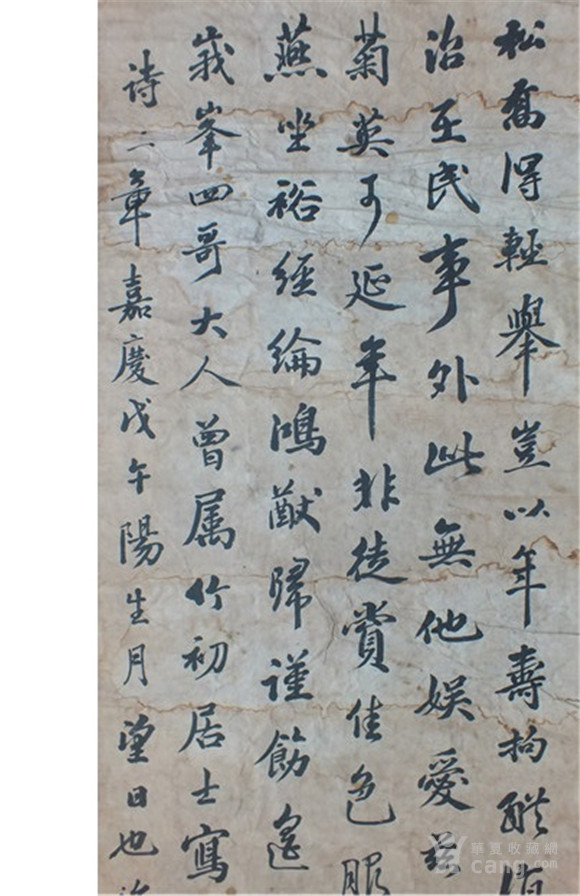 松喬得輕舉豈以年壽拘醲
治至民事外此無他娱愛茲
菊英可延年非徒賞佳色服
燕坐裕經綸鴻猷歸謹飭遙
峩峯四哥大人曾属竹初居士寫
诗二章嘉慶戊午陽生月望日也
華夏收藏網
cang.com